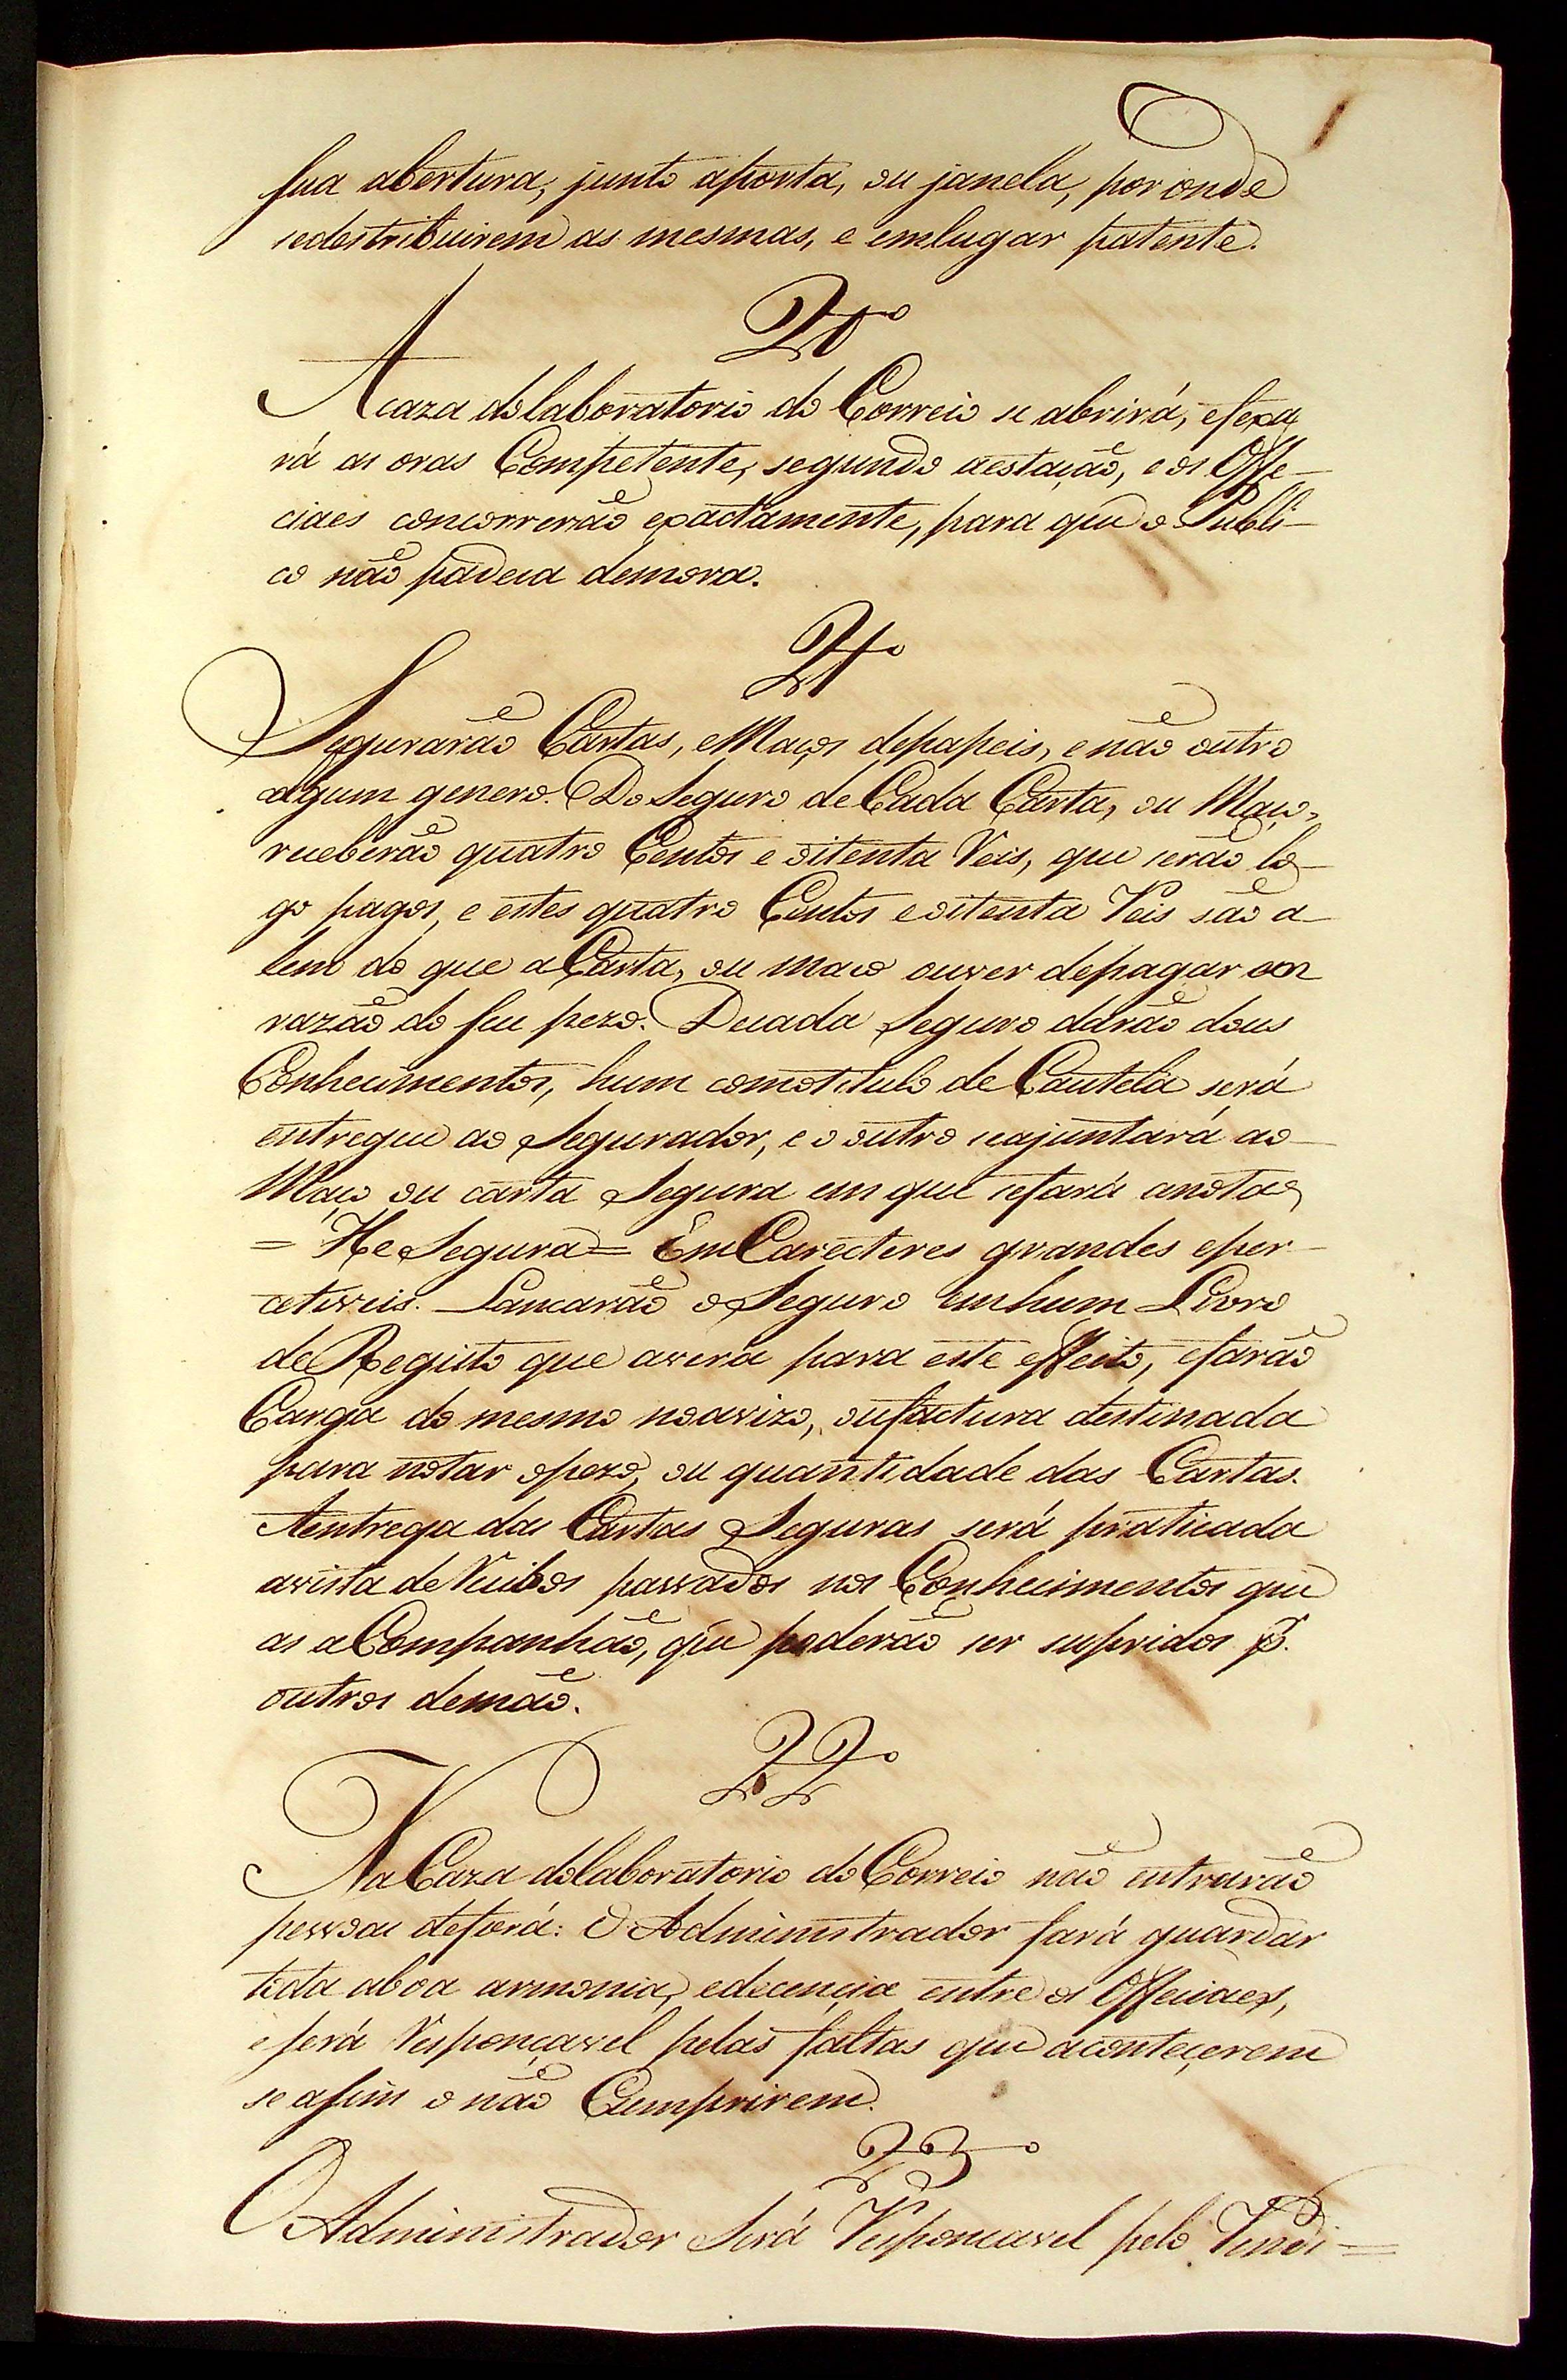 sua abertura, junto aporta, ou janela, por onde
sedestribuirem as mesmas, e emlugar patente.
20
Acaza dolaboratorio do Correio se abrirá, efexa
rá as oras Competentes, segundo aestação, e os Offe-
ciaes concorrerão exactamente, para que o Publi-
co não padeca demora.
21º
Segurarão Cartas, eMaços depapeis, enão outro
algum genero. Do Seguro de Cada Carta, ou Maço,
receberão quatro Centos e oitenta Reis, que serão lo-
go pagos, e estes quatro Centos eoitenta Reis são a
lem do que aCarta, ou maco ouver depagar em
razão do seu pezo. Decada Seguro darão dous
Conhecimentos, hum comotitulo de Cautela será
entregue ao Segurador, e o outro seajuntará ao
Maço ou carta Segura em que sefará anota
= He Segura = Em Carecteres grandes eper-
cetiveis. Lancarão oSeguro emhum Livro
de Registo que avera para este effeito, efarão
Carga do mesmo noavizo, oufactura destinada
para notar opezo, ou quantidade das Cartas.
Aentrega das Cartas Seguras será praticada
avista de Recibos passados nos Conhecimentos que
as aCompanhão, que poderão ser supridos p.
outros demão.
22º
Na Caza dolaboratorio do Correio não entrarão
pessoas defora: O Administrador fará guardar
toda aboa armonia, edecencia entre os Offeciaes,
eserá Responçavel pelas faltas que aconteçerem
se assim o não Cumprirem.
23º
O Administrador Será Responcavel pelo Rendi=